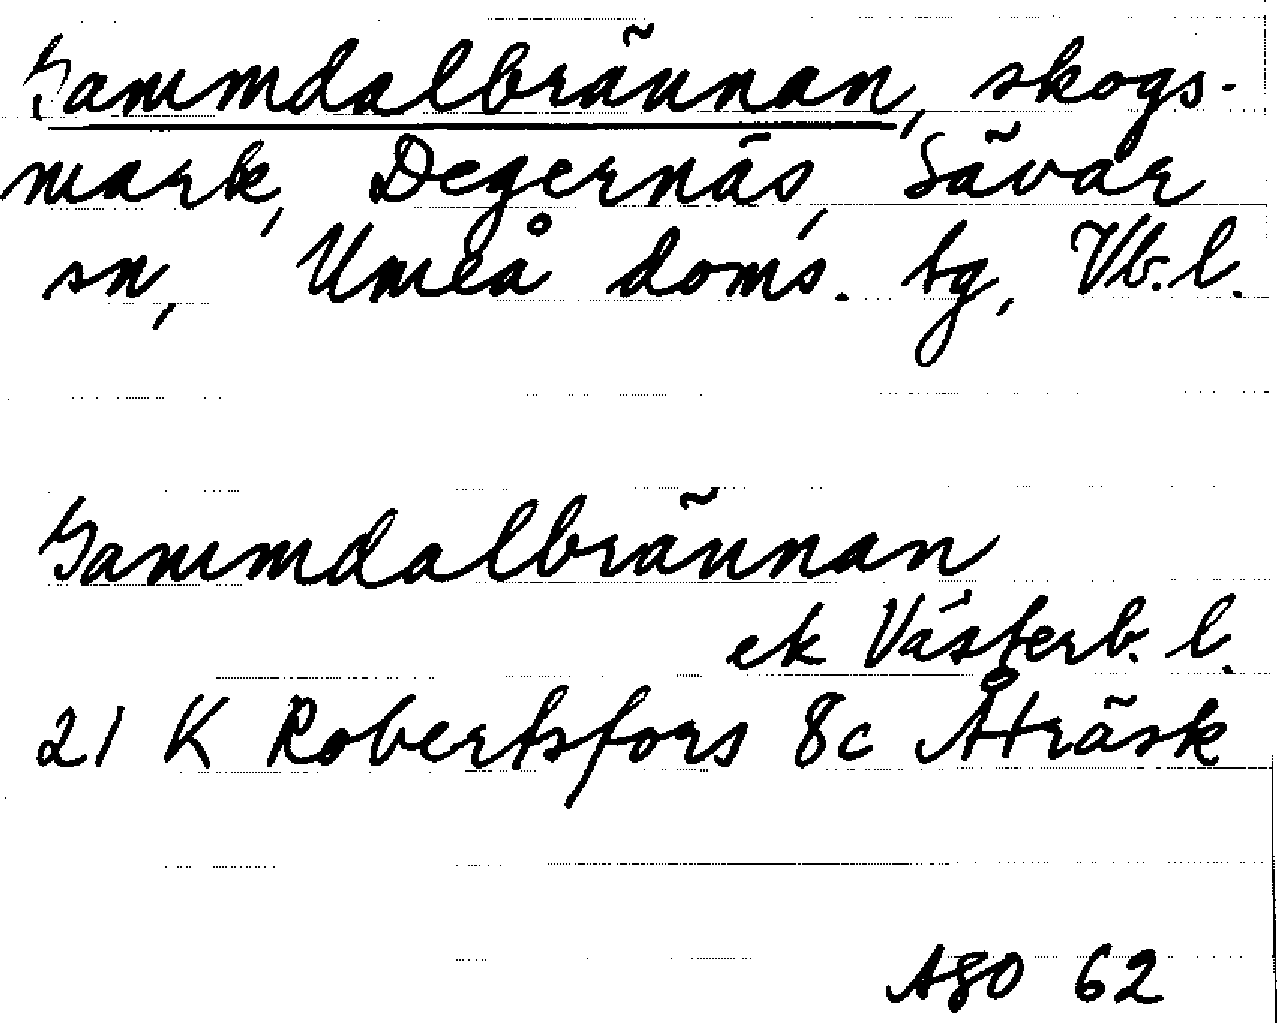 Gammdalbrännan, skogs-
mark, Degernäs, Sävar
sn, Umeå doms. tg, Vb. l.
Gammdalbrännan
ek Västerb. l.
21 K Robertsfors 8c Åträsk
AGO 62